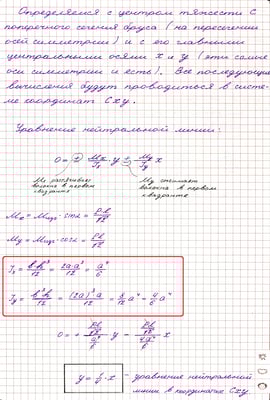 Определяемся с центром тяжести C
поперечного сечения бруса (на пересечении
осей симметрии) и с его главными
центральными осями x и y (эти самые
оси симметрии и есть). Все последующие
вычисления будут проводиться в систе-
ме координат Cxy.
Уравнение нейтральной линии:
0 = + Mx/Jx y ± My/Jy x
Mx растягивает волокна в первом квадранте
My сжимает волокна в первом квадранте
Mx = Mизг · sin α =
My = Mизг · cos α =
Jx = b·h³/12 = 2a·a³/12 = a⁴/6
Jy = b³h/12 = (2a)³·a/12 = 8/12 a⁴ = 4/6 a⁴
y = · x – уравнение нейтральной
линии в координатах Cxy